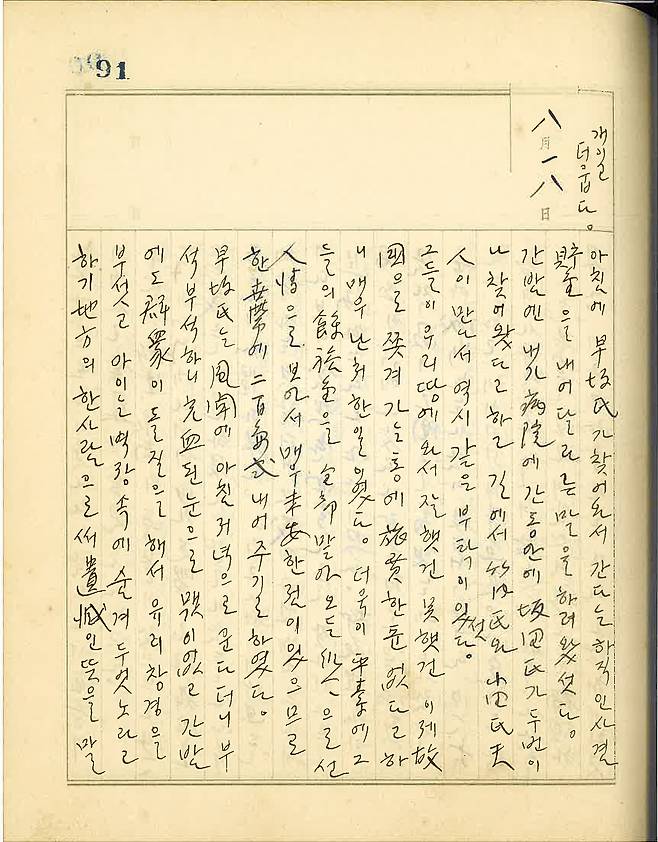 91
八月一八日
개이고
더웁다。
아침에 早坂氏가 찾어와서 간다는 하직인사 겸
貯金을 내어달라는 말을 하려왔섯다。
간밤엔 내가 病院에 간동안에 坂田氏가 두번이
나 찾어왔다고 하고 길에서 氏와 氏夫
人이 만나서 역시 같은 부탁이 있섯다。
그들이 우리땅에 와서 잘햇건 못햇건 이제 故
國으로 쫓겨가는 통에 旅費 한푼 없다고 하
니 매우 난처한 일이였다。더욱이 平素에 그
들의 金을 全部 맡아오든 으로선
人情으로 보아서 매우 未安한 점이 있으므로
한 世帶에 二百 式 내어주기로 하였다。
早坂氏는 風聞에 아침저녁으로 운다더니 부
석부석하니 充血된 눈으로 간밤
에도 群衆이 돌질으 해서 유리창경을
부섯고 아이는 벽장속에 숨겨 두엇노라고
하기 地方의 한사람으로써 遺憾인 뜻을 말